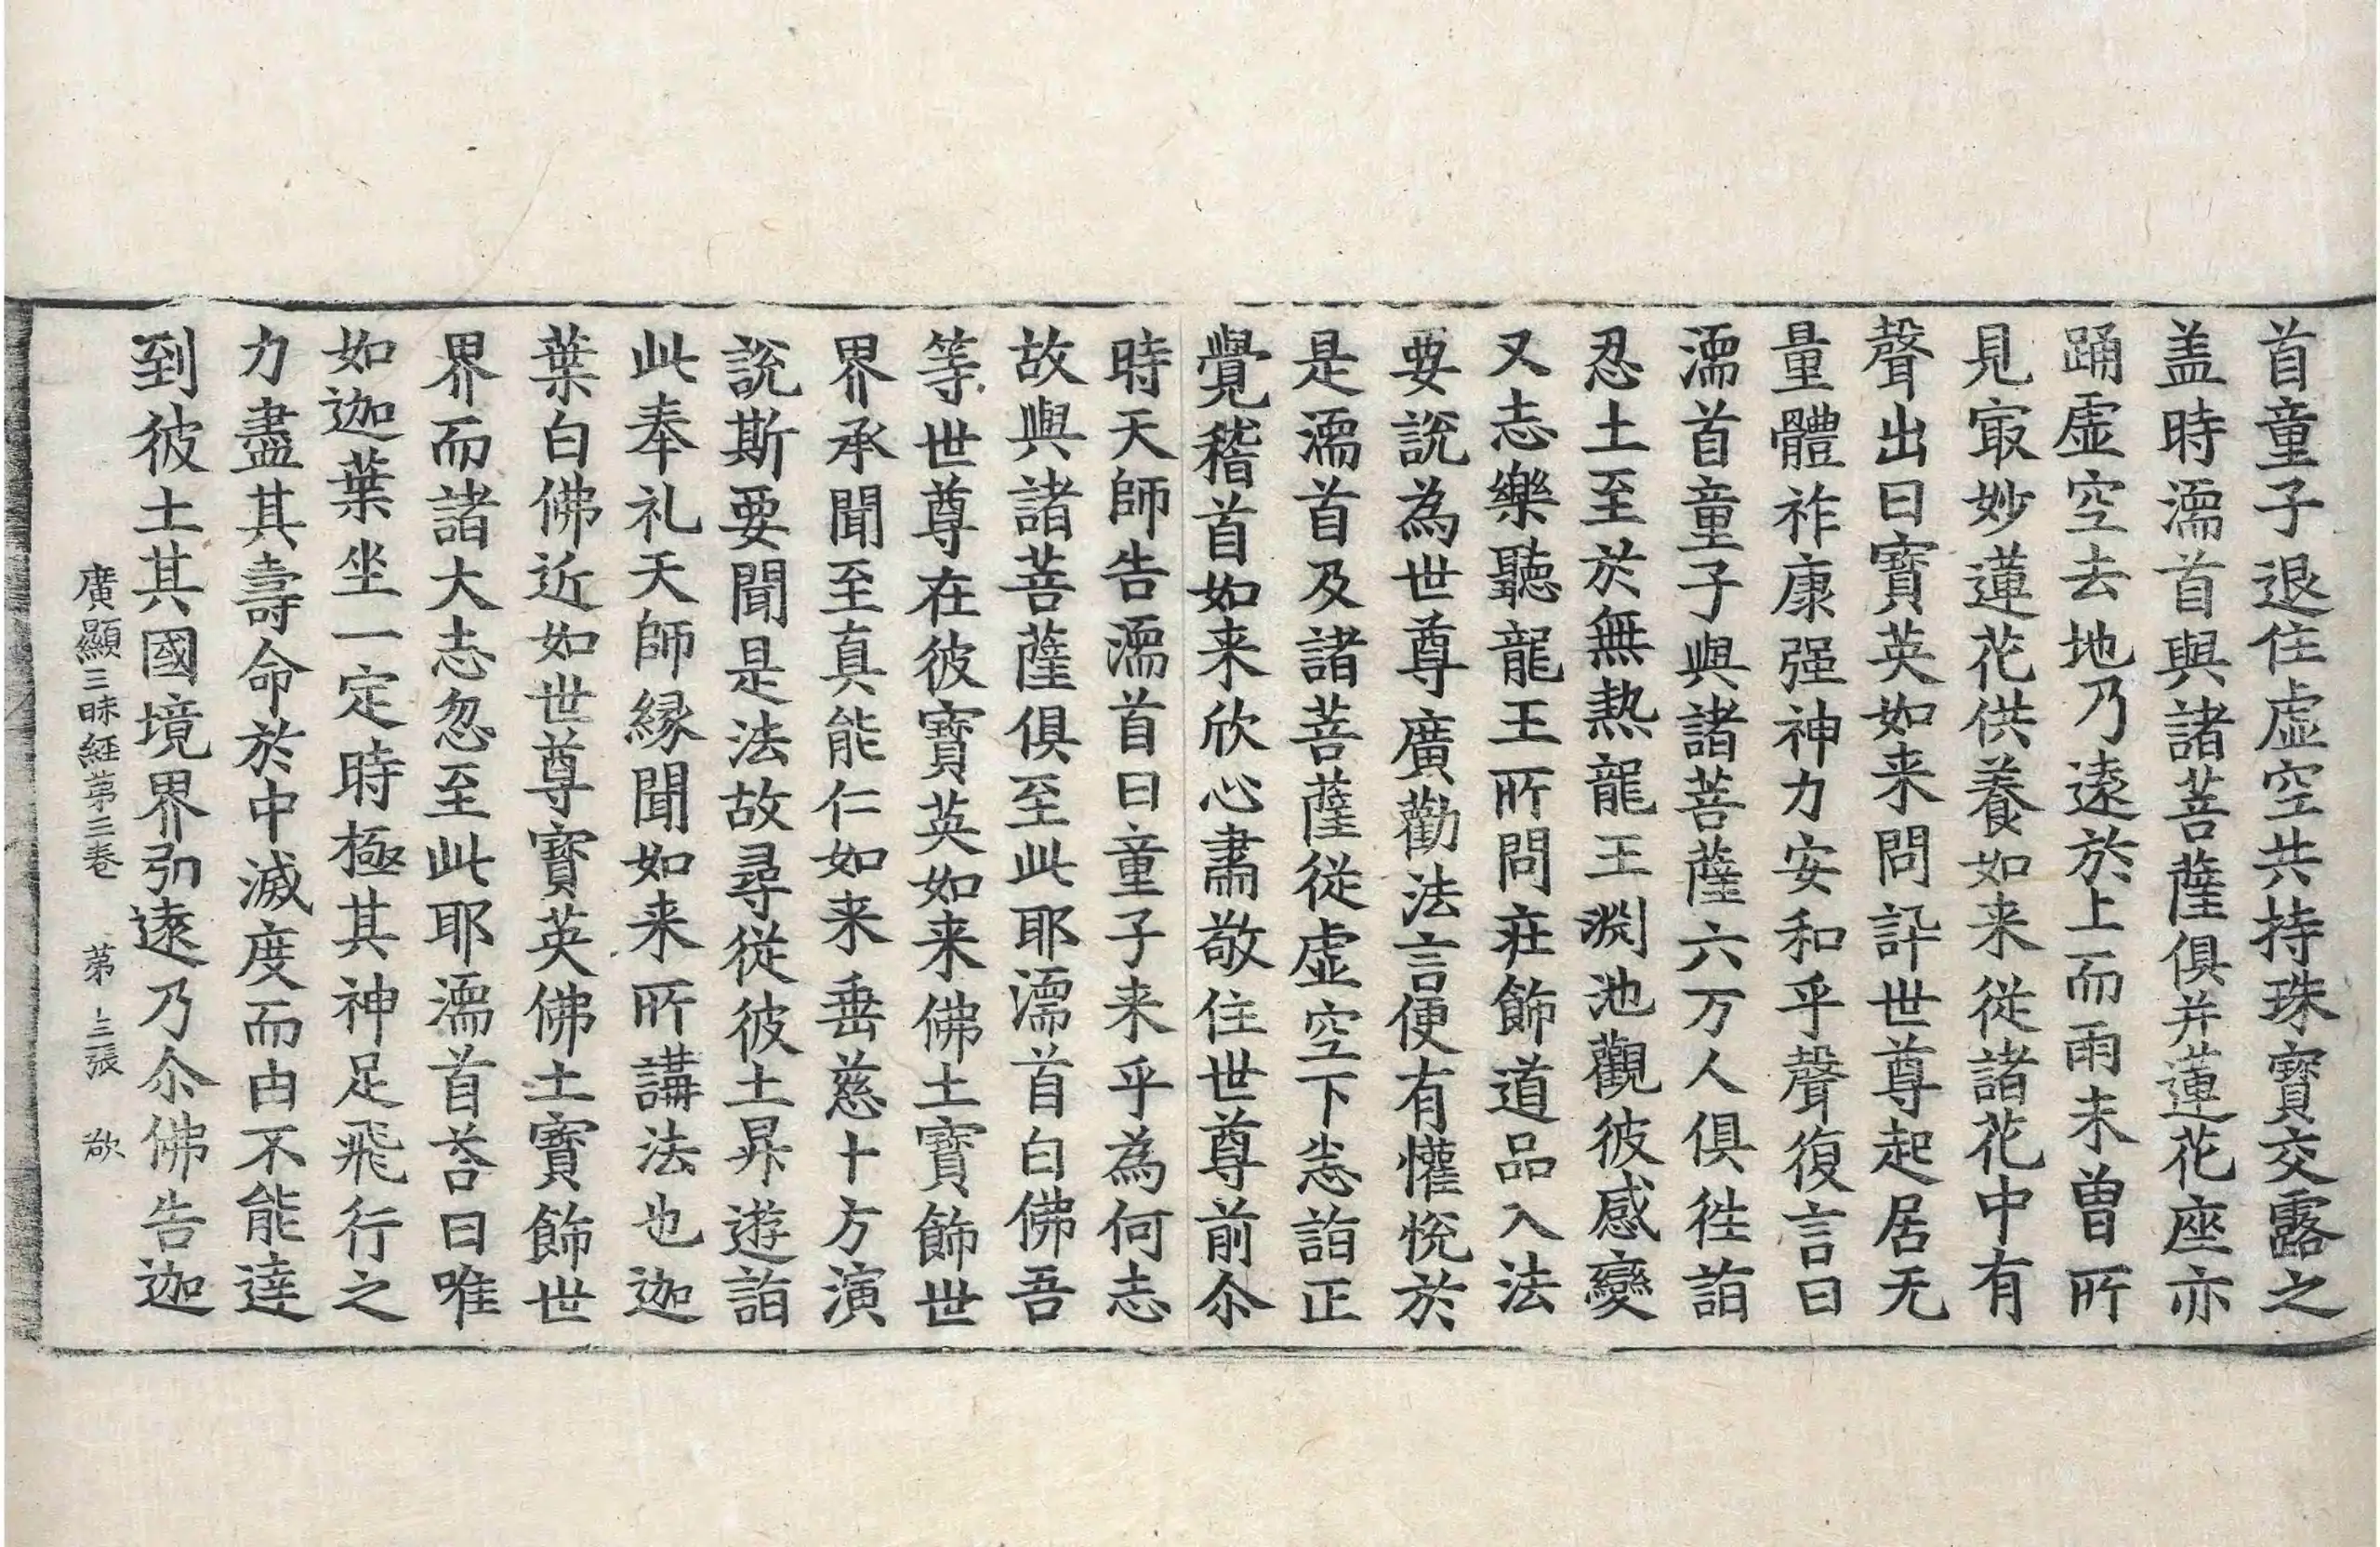 首童子退住虛空共持珠寶交露之
盖時濡首與諸菩薩俱并蓮花座亦
踊虛空去地乃遠於上而雨未曾所
見㝡妙蓮花供養如来從諸花中有
聲出曰寶英如来問訊世尊起居无
量體祚康强神力安和乎聲復言曰
濡首童子與諸菩薩六万人俱徃詣
忍土至於無熱龍王淵池觀彼感變
又志樂聽龍王所問莊飾道品入法
要說為世尊廣勸法言便有懽悅於
是濡首及諸菩薩從虛空下悉詣正
覺稽首如来欣心肅敬住世尊前尒
時天師告濡首曰童子来乎為何志
故與諸菩薩俱至此耶濡首白佛吾
等世尊在彼寶英如来佛土寶飾世
界承聞至真能仁如来垂慈十方演
說斯要聞是法故尋從彼土昇遊詣
此奉礼天師緣聞如来所講法也迦
葉白佛近如世尊寶英佛土寶飾世
界而諸大志忽至此耶濡首荅曰唯
如迦葉坐一定時極其神足飛行之
力盡其壽命於中滅度而由不能達
到彼土其國境界弘遠乃尒佛告迦
廣顯三昧經第三卷 第十三張 欲